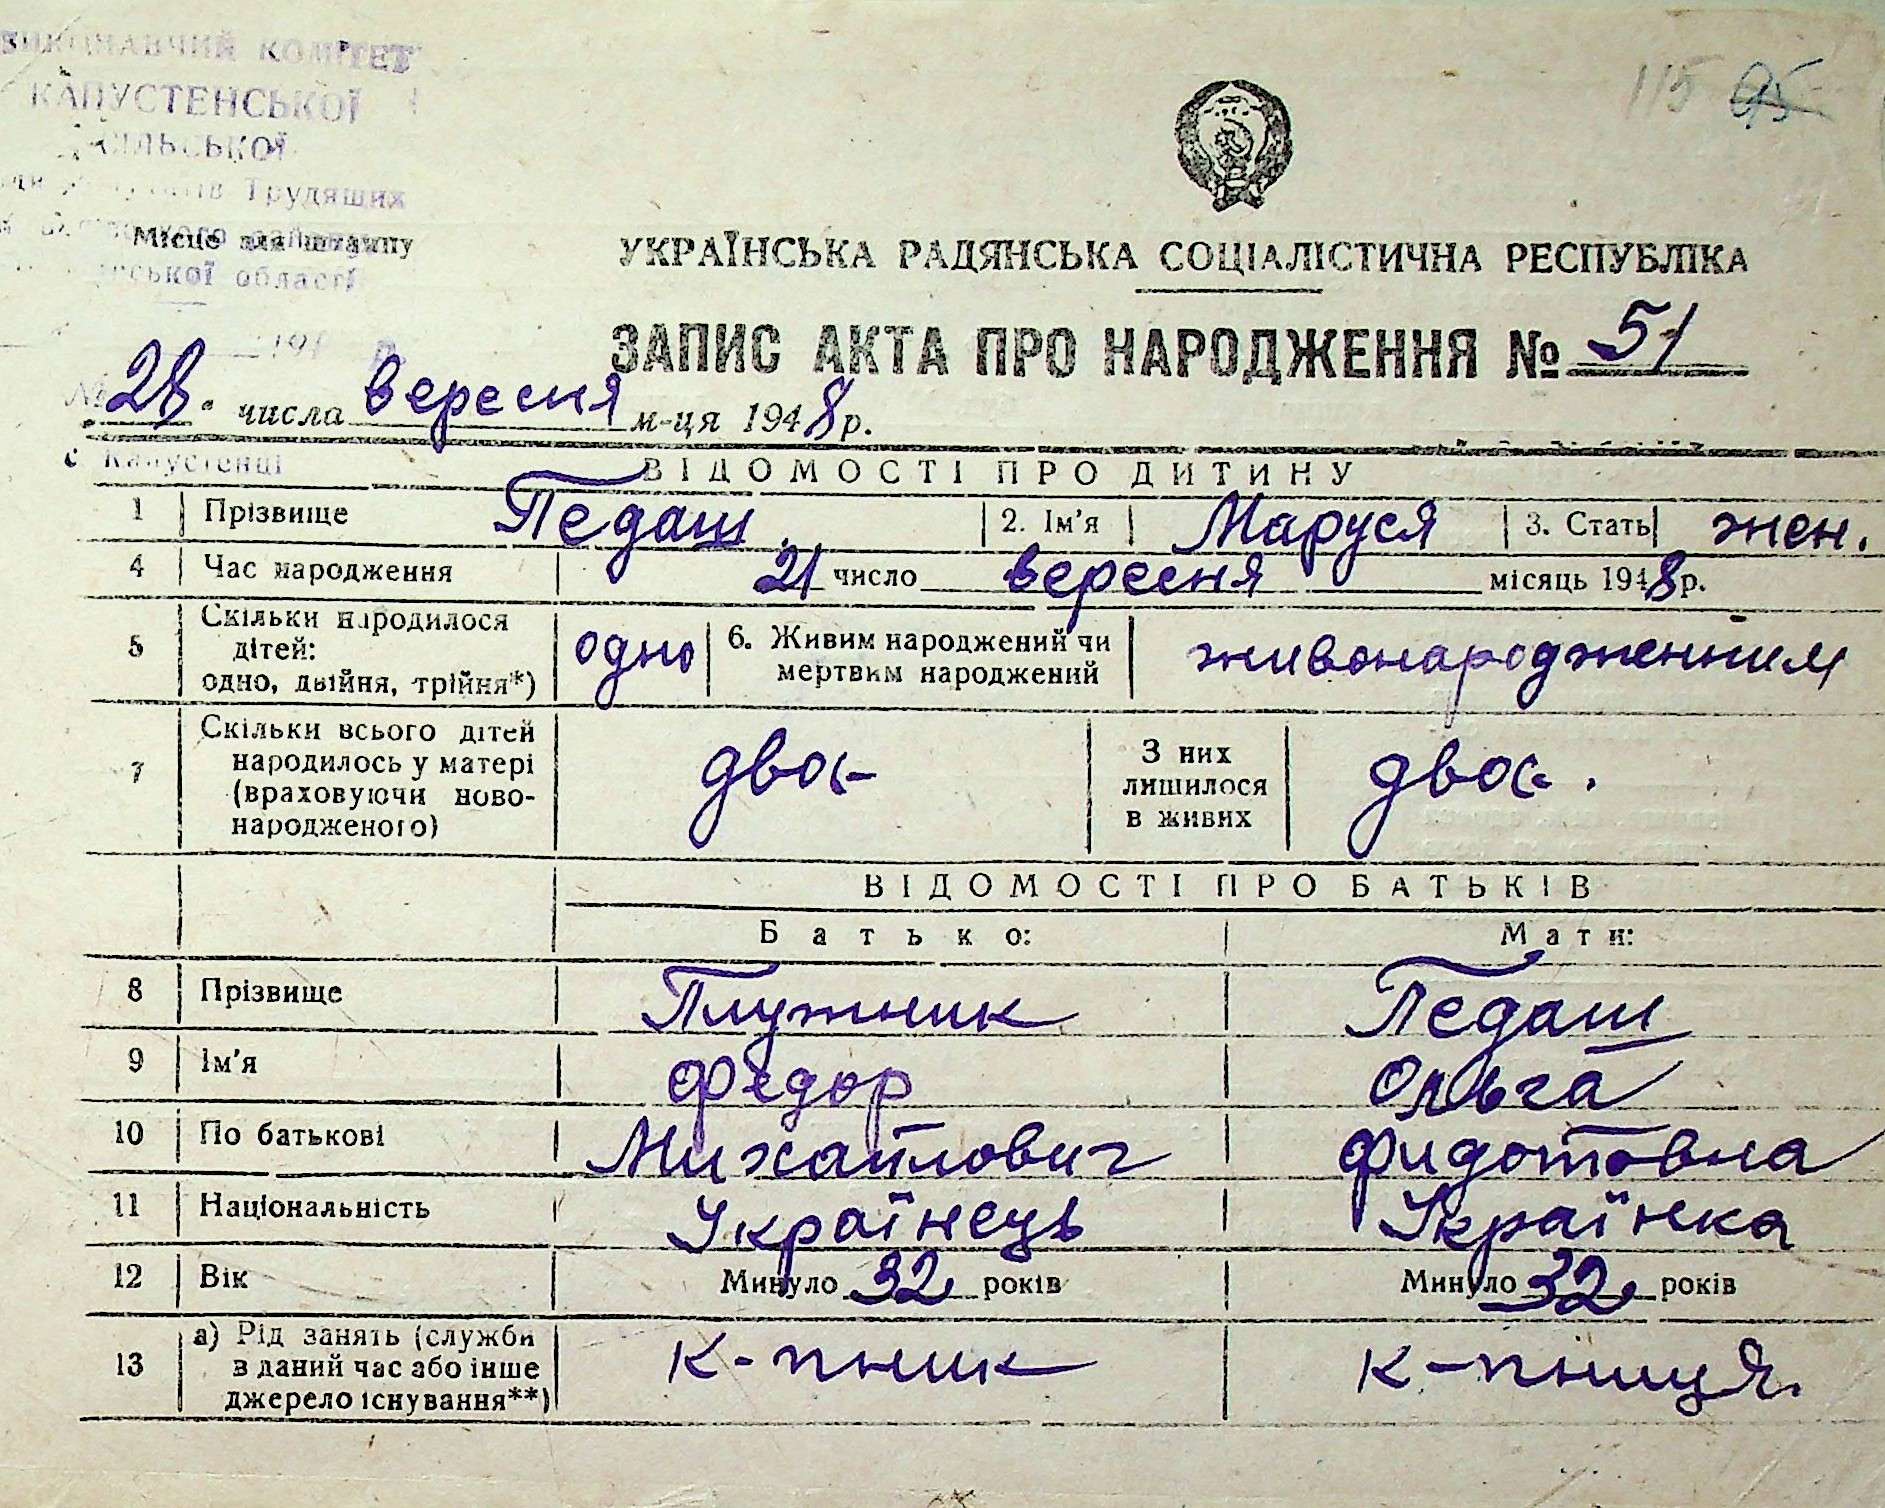 ВИКОНАВЧИЙ КОМІТЕТ
КАПУСТЕНСЬКОЇ
СІЛЬСЬКОЇ
Трудящих
області
115 95
Місце для штампу
УКРАЇНСЬКА РАДЯНСЬКА СОЦІАЛІСТИЧНА РЕСПУБЛІКА
ЗАПИС АКТА ПРО НАРОДЖЕННЯ № 51
№ 28. числа вересня м-ця 1948 р.
с Капустенці
ВІДОМОСТІ ПРО ДИТИНУ
1 Прізвище Педаш. 2. Ім'я Маруся 3. Стать жен.
4 Час народження 21 число вересня місяць 1948 р.
5 Скільки народилося дітей: одно, двійня, трійня*) одно 6. Живим народжений чи мертвим народжений живонародженним
7 Скільки всього дітей народилось у матері (враховуючи новонародженого) двоє З них лишилося в живих двоє.
ВІДОМОСТІ ПРО БАТЬКІВ
Батько: Мати:
8 Прізвище Плужник Педаш
9 Ім'я Федор Ольга
10 По батькові Михайлович Фидотовна
11 Національність Українець Українка
12 Вік Минуло 32 років Минуло 32 років
13 а) Рід занять (служби в даний час або інше джерело існування**) к-пник к-пниця.